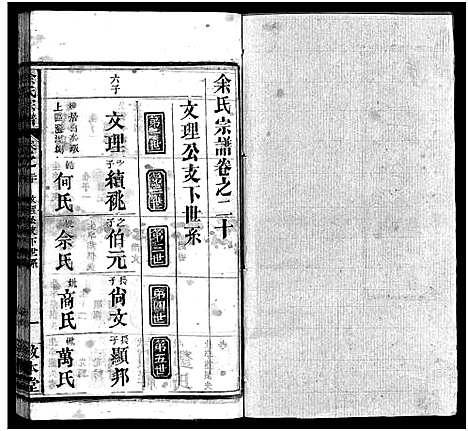 余氏宗譜卷之二十
文理公支下世系
第一世
第二世
第三世
第四世
第五世
六子
文理
子
績祧
之子
伯元
長子
尙文
長子
顯邦
何氏
余氏
商氏
萬氏
余氏宗譜
卷之二十
文理公支下世系
一
敦本堂